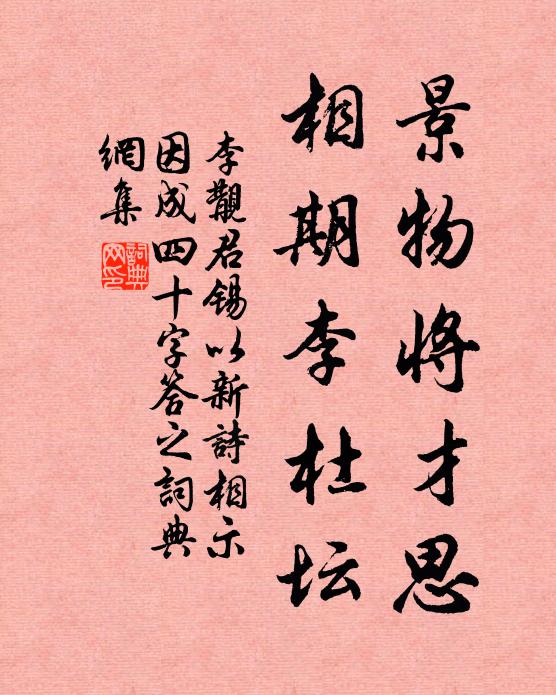 景物将才思
相期李杜坛
李觀君錫以新詩相示
因成四十字答之詞典
網集
詞典網印